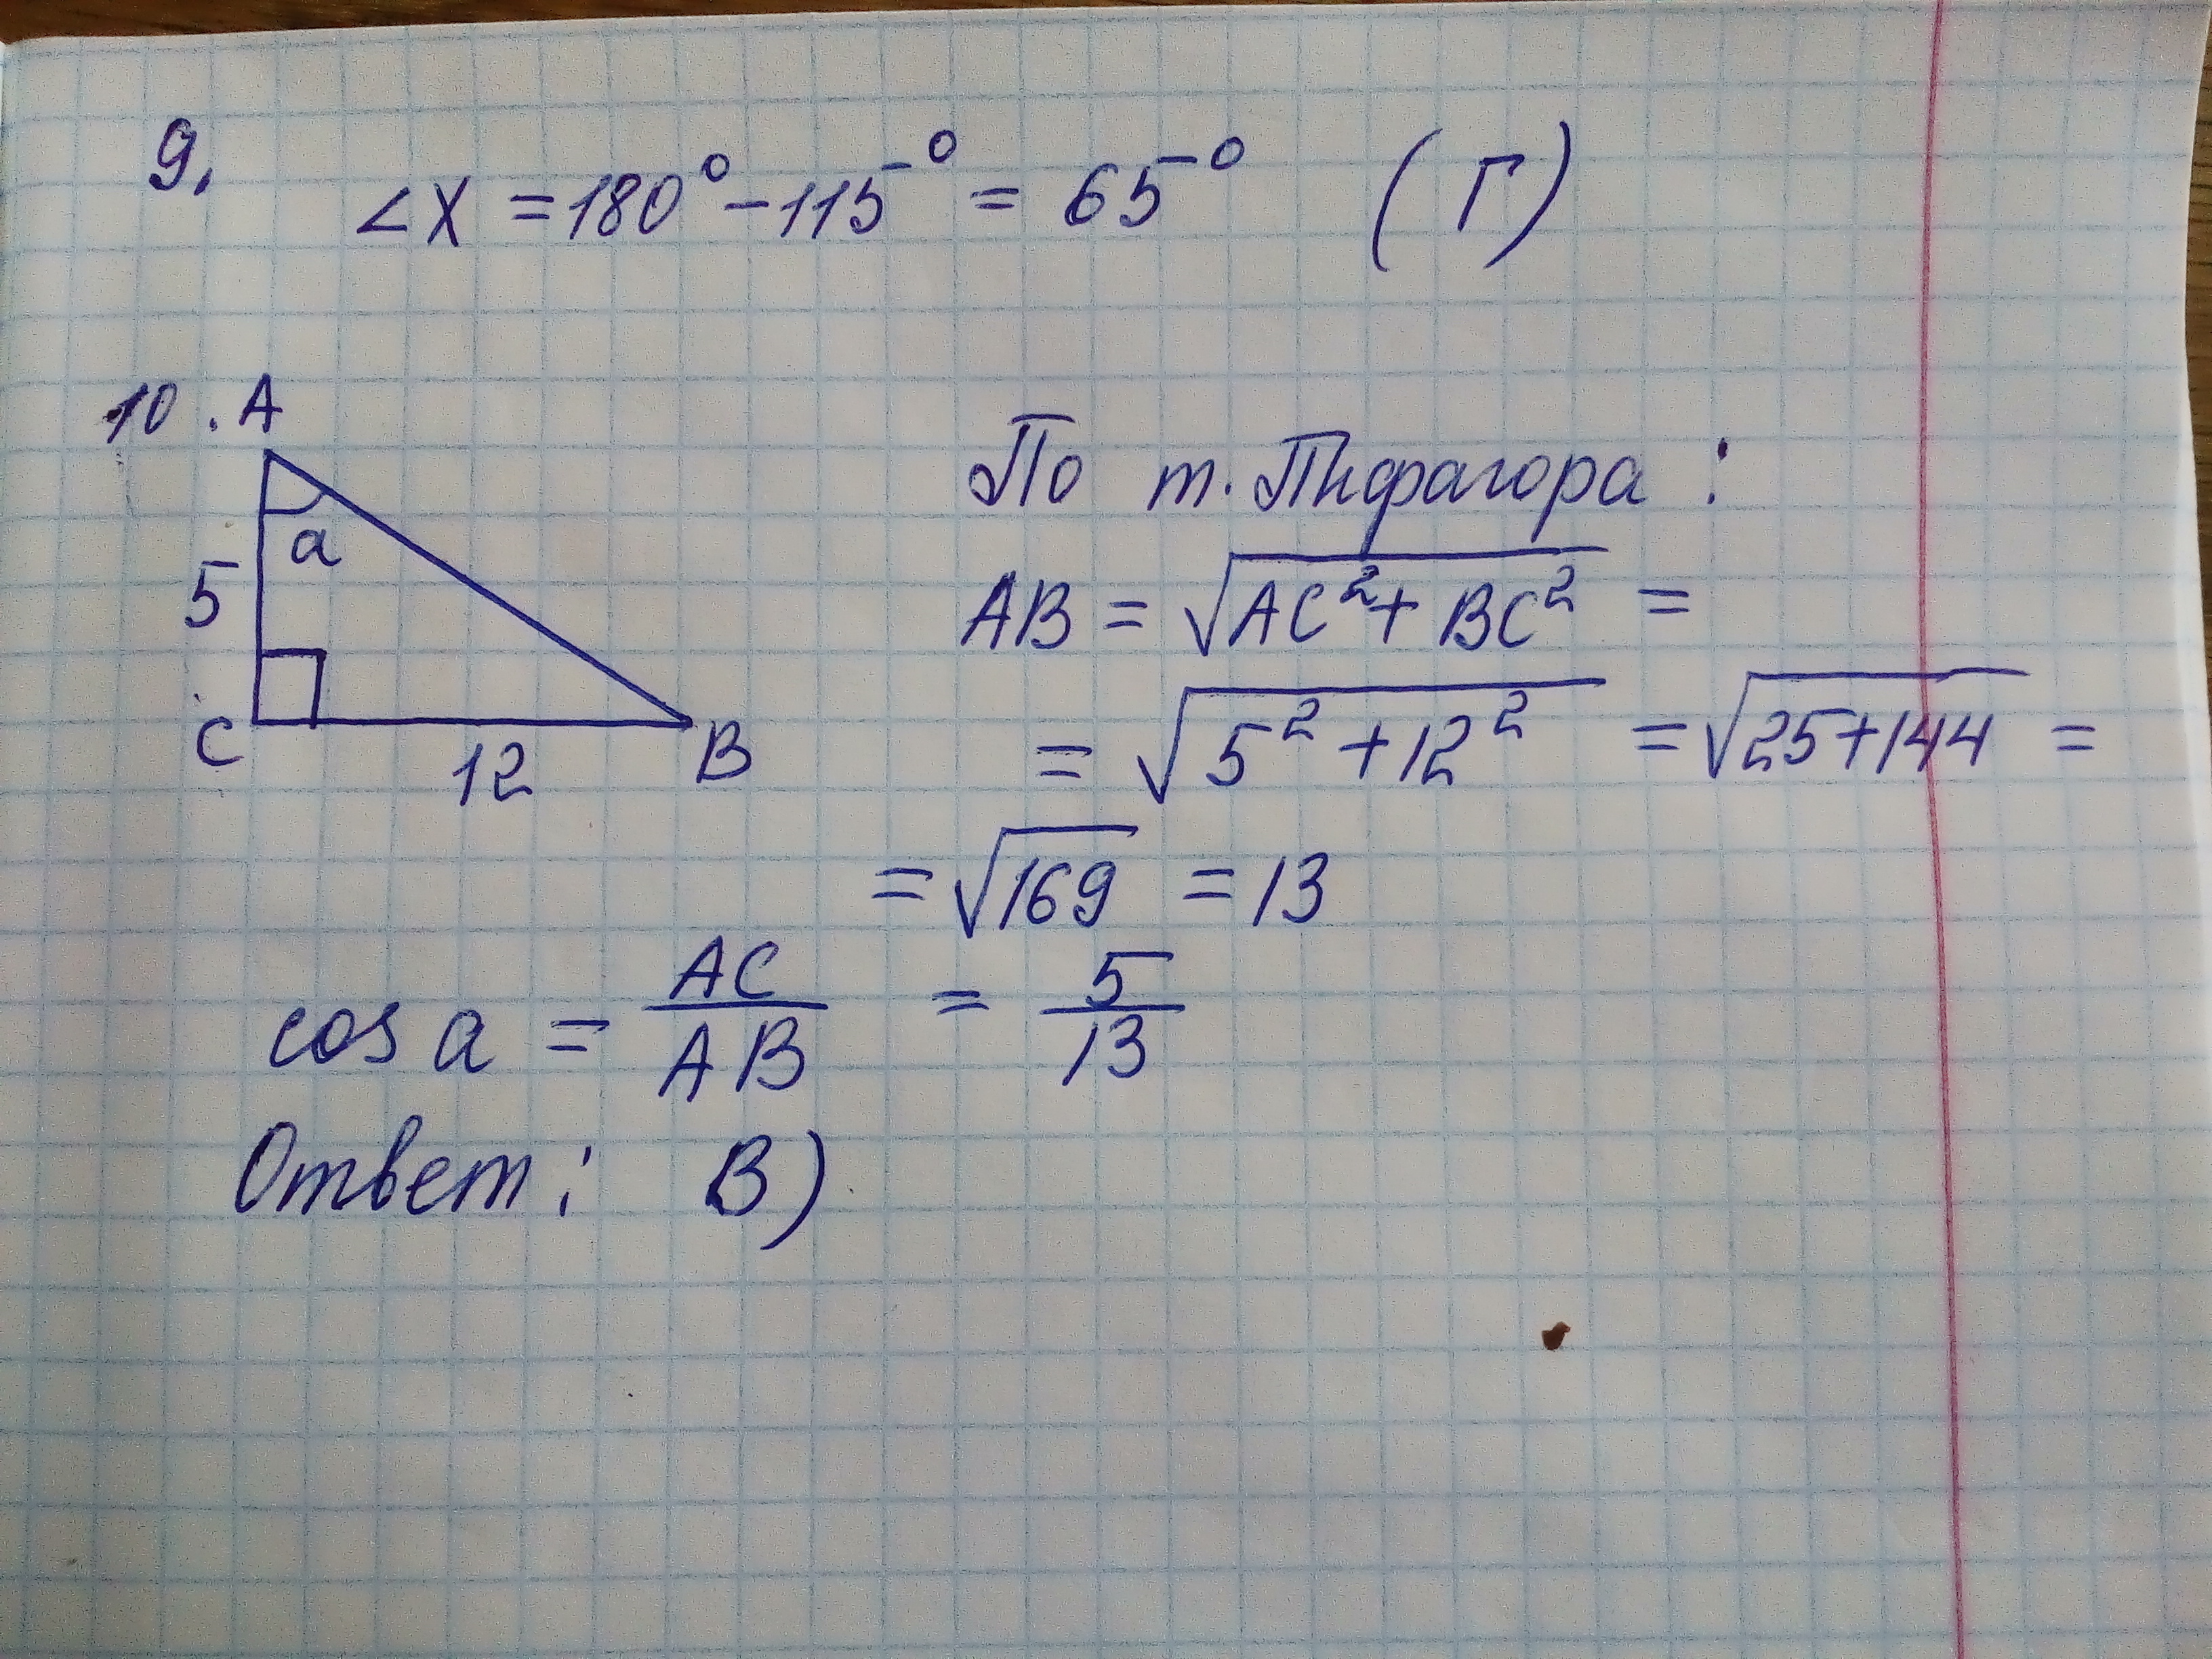 9. ∠X = 180° - 115° = 65° (Г)
10. A
a
5
C
12
B
По т. Пифагора:
AB = √(AC² + BC²) =
= √(5² + 12²) = √(25+144) =
= √169 = 13
cos a = AC/AB = 5/13
Ответ: В)